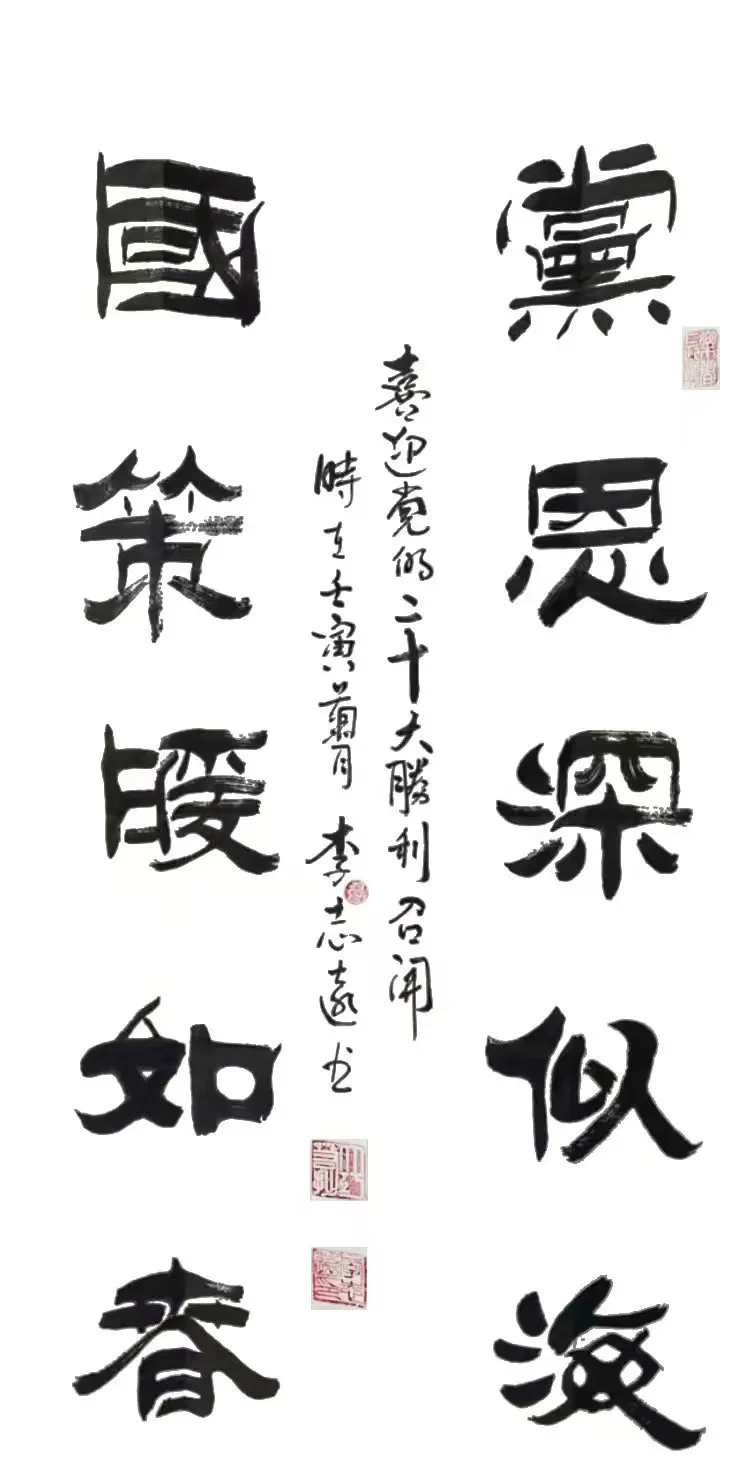 黨恩深似海
國策暖如春
喜迎党的二十大勝利召開
時在壬寅蘭月 李志遠书